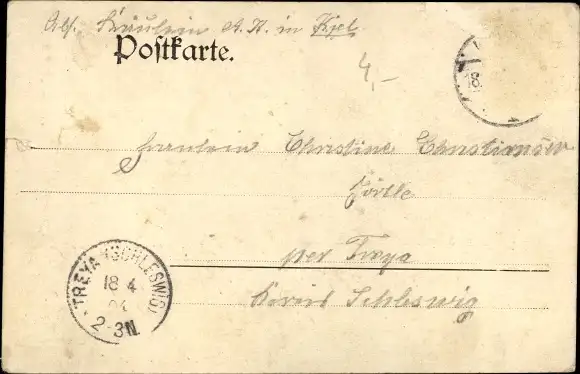 Abs. Fräulein A. H. in Kiel
Postkarte.
4,-
18.
Fräulein Christine Christiansen
per Treya
Kreis Schleswig
TREYA (SCHLESWIG)
18 4
04
2-3N.